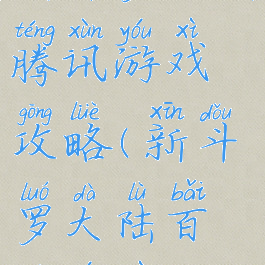 téng xùn yóu xì
腾讯游戏
gōng lüè xīn dǒu
攻略(新斗
luó dà lù bǎi
罗大陆百